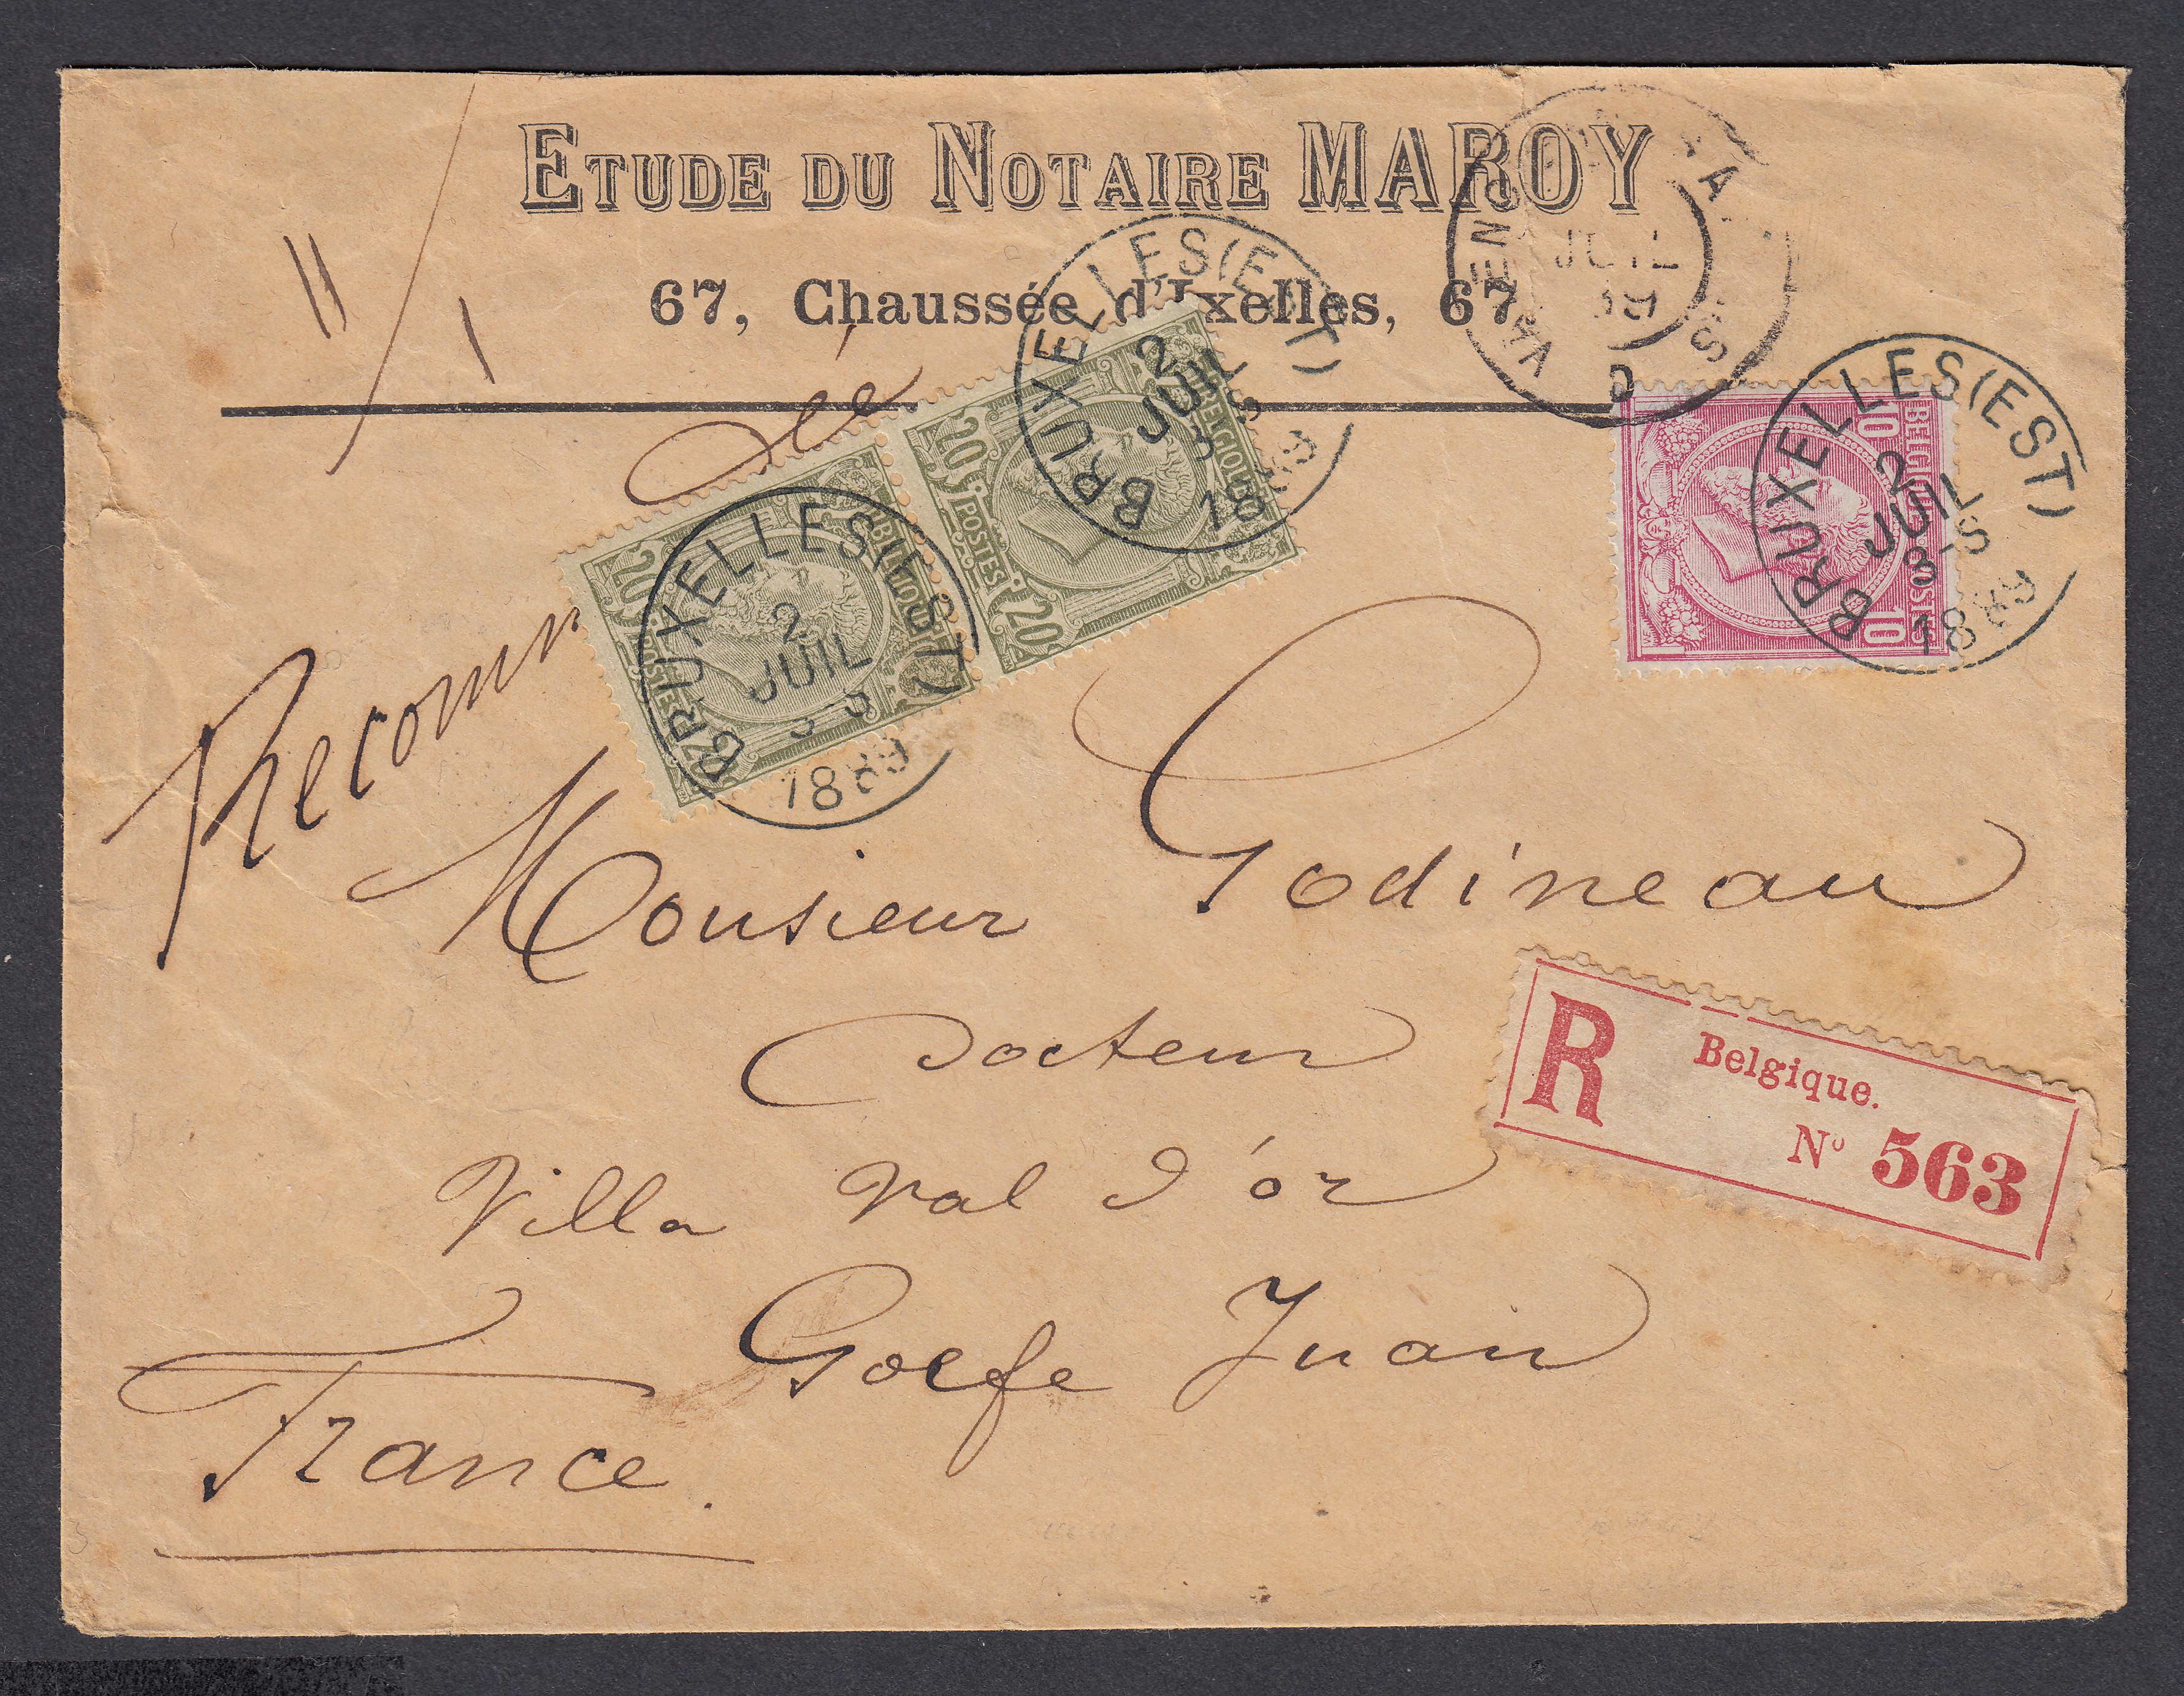 ETUDE DU NOTAIRE MAROY
67, Chaussée d'Ixelles, 67
BRUXELLES (EST)
2
JUIL
3-S
1889
BELGIQUE
20
POSTES
20
BRUXELLES (EST)
2
JUIL
3-S
1889
BELGIQUE
20
POSTES
20
JUIL
89
BRUXELLES (EST)
2
JUIL
3-S
1889
BELGIQUE
POSTES
10
10
Monsieur Godineau
Docteur
Villa Val d'or
Golfe Juan
France.
R Belgique.
Nº 563